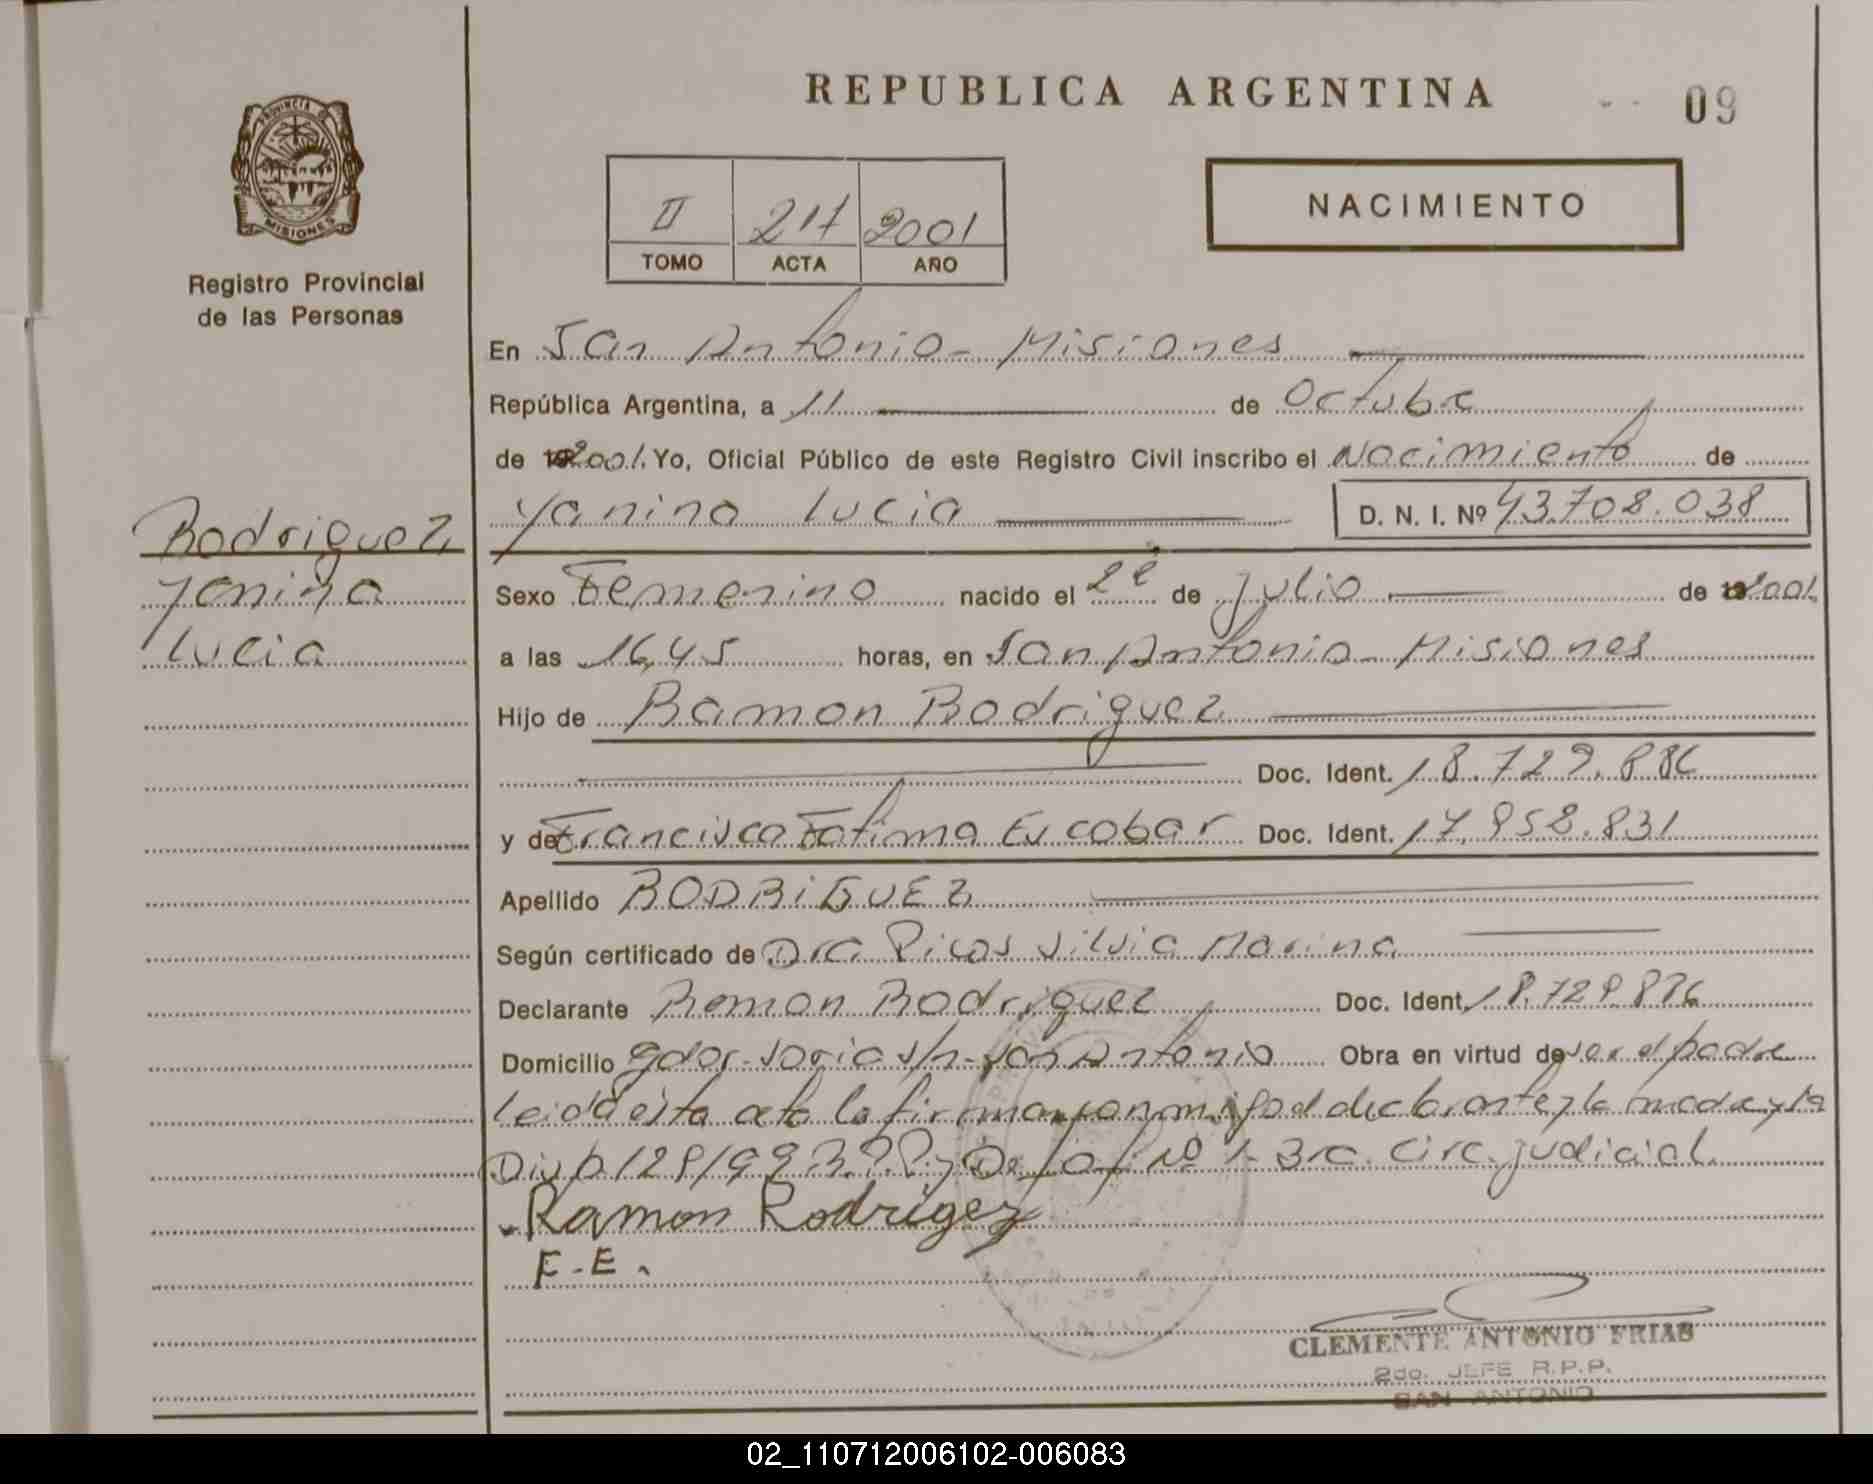 REPUBLICA ARGENTINA
09
PROVINCIA DE
MISIONES
Registro Provincial
de las Personas
II 217 2001
TOMO ACTA AÑO
NACIMIENTO
En San Antonio - Misiones
República Argentina, a 11 de Octubre
de 2001. Yo, Oficial Público de este Registro Civil inscribo el Nacimiento de
Yanina Lucia D. N. I. Nº 43.708.038
Rodriguez
Yanina
Lucia
Sexo Femenino nacido el de Julio de 2001.
a las 16,45 horas, en San Antonio - Misiones
Hijo de Ramon Rodriguez
Doc. Ident. 18.729.886
y de Francisca Fatima Escobar Doc. Ident. 17.958.831
Apellido RODRIGUEZ
Según certificado de Dra. Silvia Marina
Declarante Ramon Rodriguez Doc. Ident.
Domicilio Gdor. Soria s/n - San Antonio Obra en virtud de ser el padre
Leida esta acta la firman conmigo el declarante y la madre y la
Disp. Nº 1 - 3ra. Circ. judicial.
Ramon Rodrigez
F. E.
CLEMENTE ANTONIO FRIAS
2do. JEFE R.P.P.
SAN ANTONIO
02_110712006102-006083